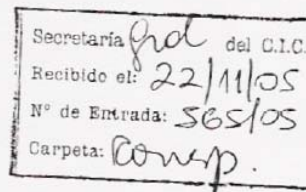 Secretaría Gral del C.I.C.
Recibido el: 22/11/05
Nº de Entrada: 565/05
Carpeta: Corresp.